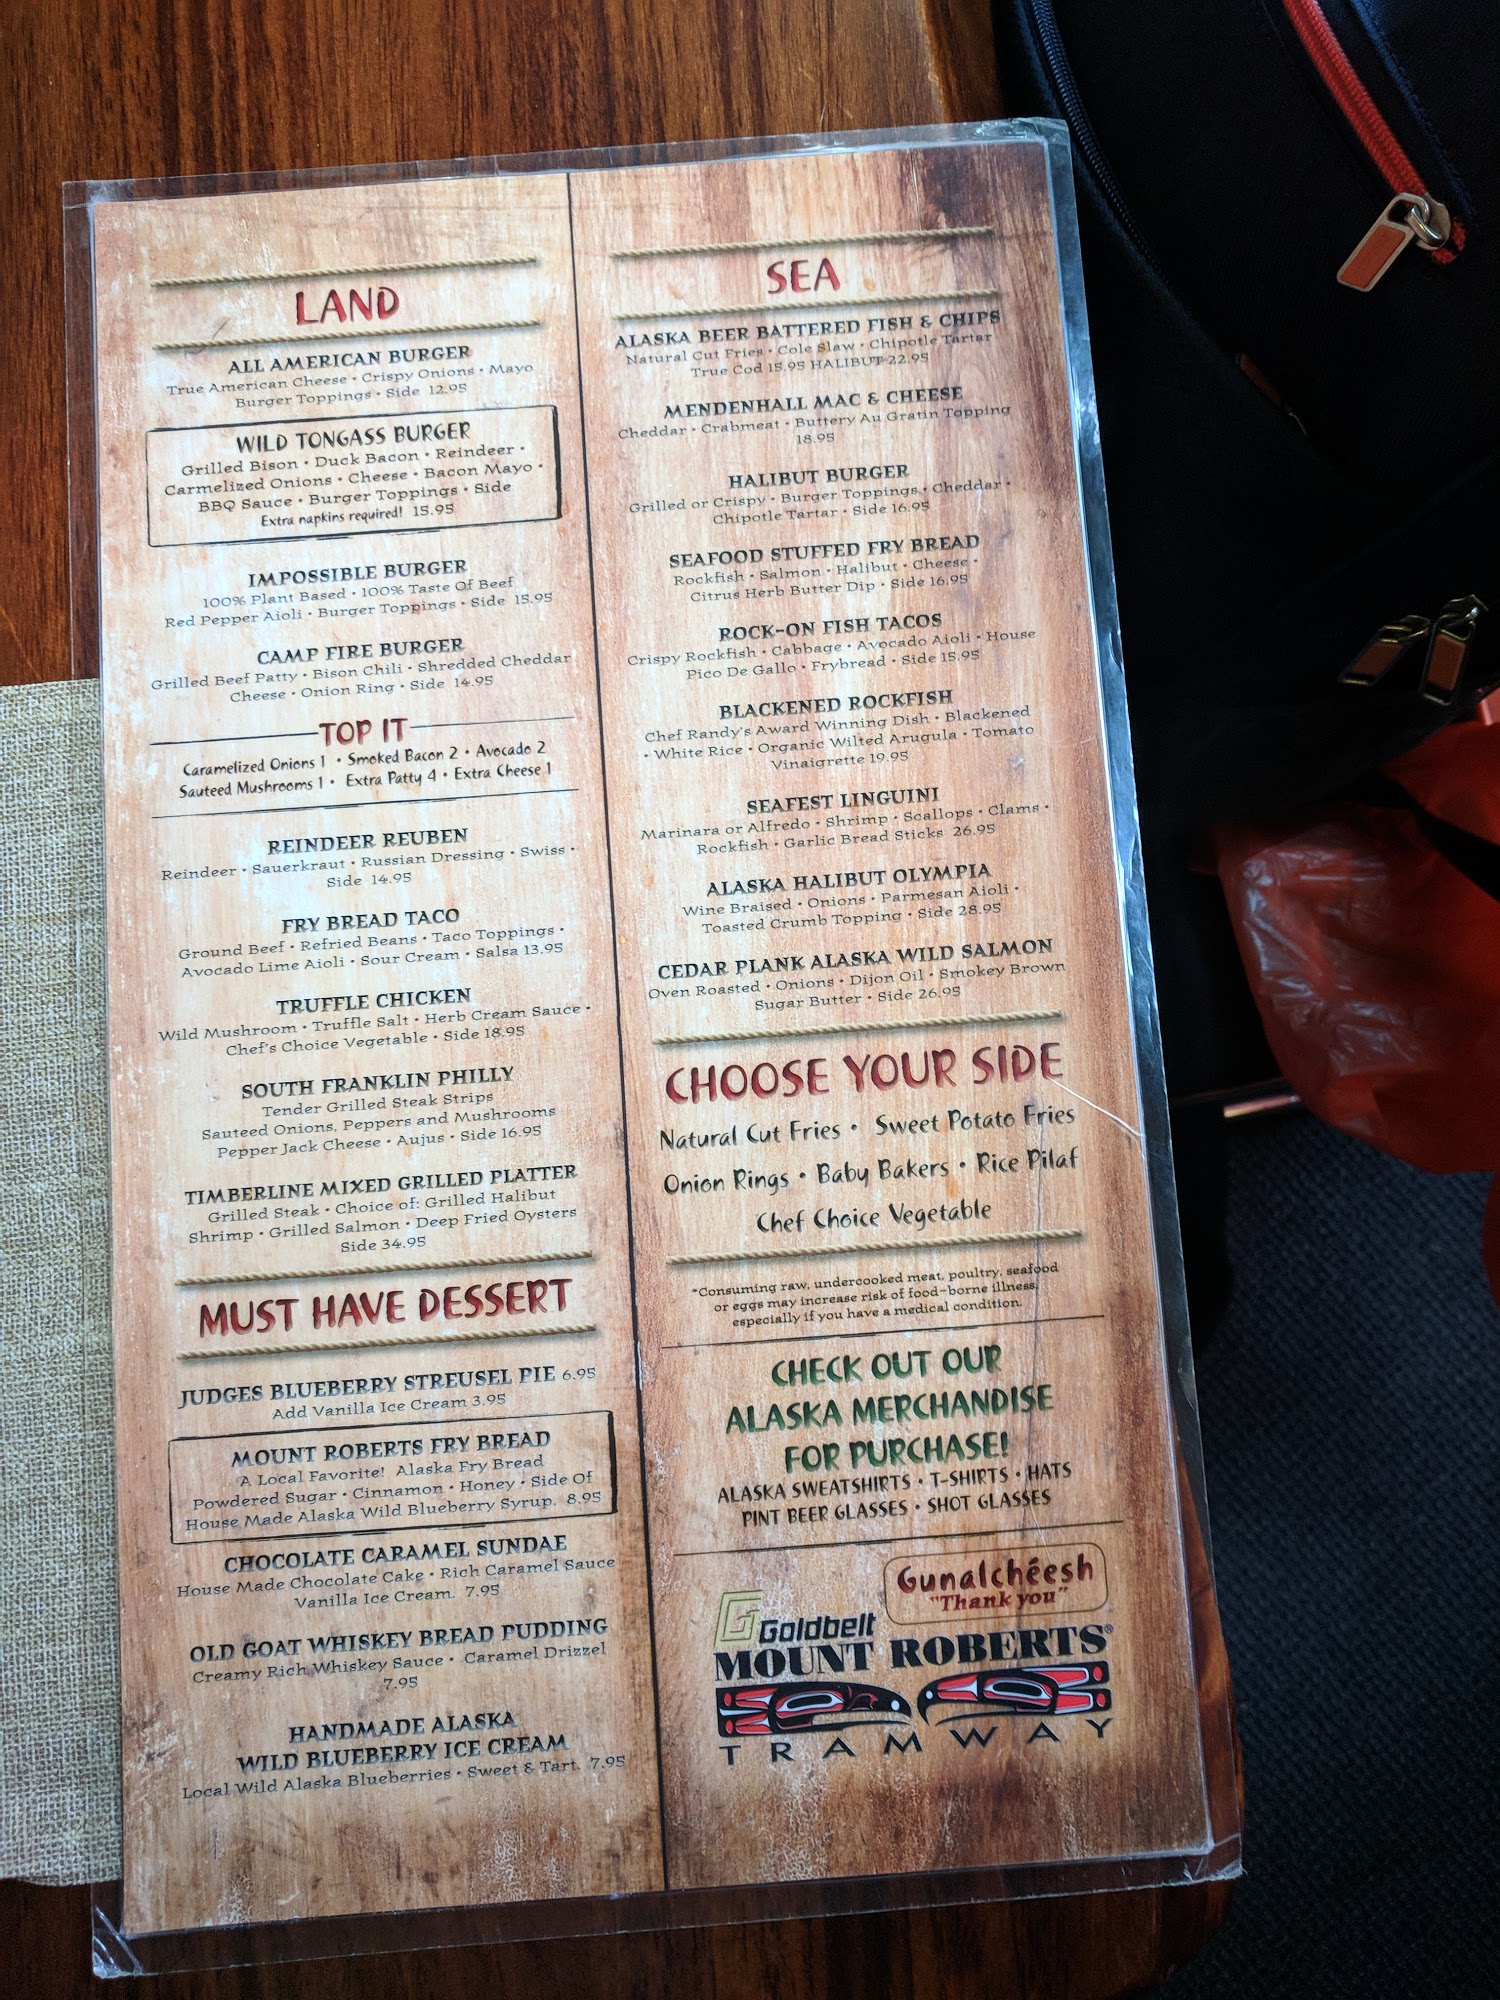 LAND
ALL AMERICAN BURGER
True American Cheese • Crispy Onions • Mayo
Burger Toppings • Side 12.95
WILD TONGASS BURGER
Grilled Bison • Duck Bacon • Reindeer •
Carmelized Onions • Cheese • Bacon Mayo •
BBQ Sauce • Burger Toppings • Side
Extra napkins required! 15.95
IMPOSSIBLE BURGER
100% Plant Based • 100% Taste Of Beef
Red Pepper Aioli • Burger Toppings • Side 15.95
CAMP FIRE BURGER
Grilled Beef Patty • Bison Chili • Shredded Cheddar
Cheese • Onion Ring • Side 14.95
TOP IT
Caramelized Onions 1 • Smoked Bacon 2 • Avocado 2
Sauteed Mushrooms 1 • Extra Patty 4 • Extra Cheese 1
REINDEER REUBEN
Reindeer • Sauerkraut • Russian Dressing • Swiss •
Side 14.95
FRY BREAD TACO
Ground Beef • Refried Beans • Taco Toppings •
Avocado Lime Aioli • Sour Cream • Salsa 13.95
TRUFFLE CHICKEN
Wild Mushroom • Truffle Salt • Herb Cream Sauce •
Chef's Choice Vegetable • Side 18.95
SOUTH FRANKLIN PHILLY
Tender Grilled Steak Strips
Sauteed Onions, Peppers and Mushrooms
Pepper Jack Cheese • Aujus • Side 16.95
TIMBERLINE MIXED GRILLED PLATTER
Grilled Steak • Choice of: Grilled Halibut
Shrimp • Grilled Salmon • Deep Fried Oysters
Side 34.95
MUST HAVE DESSERT
JUDGES BLUEBERRY STREUSEL PIE 6.95
Add Vanilla Ice Cream 3.95
MOUNT ROBERTS FRY BREAD
A Local Favorite! Alaska Fry Bread
Powdered Sugar • Cinnamon • Honey • Side Of
House Made Alaska Wild Blueberry Syrup. 8.95
CHOCOLATE CARAMEL SUNDAE
House Made Chocolate Cake • Rich Caramel Sauce
Vanilla Ice Cream. 7.95
OLD GOAT WHISKEY BREAD PUDDING
Creamy Rich Whiskey Sauce • Caramel Drizzel
7.95
HANDMADE ALASKA
WILD BLUEBERRY ICE CREAM
Local Wild Alaska Blueberries • Sweet & Tart. 7.95
SEA
ALASKA BEER BATTERED FISH & CHIPS
Natural Cut Fries • Cole Slaw • Chipotle Tartar
True Cod 15.95 HALIBUT 22.95
MENDENHALL MAC & CHEESE
Cheddar • Crabmeat • Buttery Au Gratin Topping
18.95
HALIBUT BURGER
Grilled or Crispy • Burger Toppings • Cheddar •
Chipotle Tartar • Side 16.95
SEAFOOD STUFFED FRY BREAD
Rockfish • Salmon • Halibut • Cheese •
Citrus Herb Butter Dip • Side 16.95
ROCK-ON FISH TACOS
Crispy Rockfish • Cabbage • Avocado Aioli • House
Pico De Gallo • Frybread • Side 15.95
BLACKENED ROCKFISH
Chef Randy's Award Winning Dish • Blackened
• White Rice • Organic Wilted Arugula • Tomato
Vinaigrette 19.95
SEAFEST LINGUINI
Marinara or Alfredo • Shrimp • Scallops • Clams •
Rockfish • Garlic Bread Sticks 26.95
ALASKA HALIBUT OLYMPIA
Wine Braised • Onions • Parmesan Aioli •
Toasted Crumb Topping • Side 28.95
CEDAR PLANK ALASKA WILD SALMON
Oven Roasted • Onions • Dijon Oil • Smokey Brown
Sugar Butter • Side 26.95
CHOOSE YOUR SIDE
Natural Cut Fries • Sweet Potato Fries
Onion Rings • Baby Bakers • Rice Pilaf
Chef Choice Vegetable
*Consuming raw, undercooked meat, poultry, seafood
or eggs may increase risk of food-borne illness,
especially if you have a medical condition.
CHECK OUT OUR
ALASKA MERCHANDISE
FOR PURCHASE!
ALASKA SWEATSHIRTS • T-SHIRTS • HATS
PINT BEER GLASSES • SHOT GLASSES
Gunalchéesh
"Thank you"
Goldbelt
MOUNT ROBERTS®
TRAMWAY